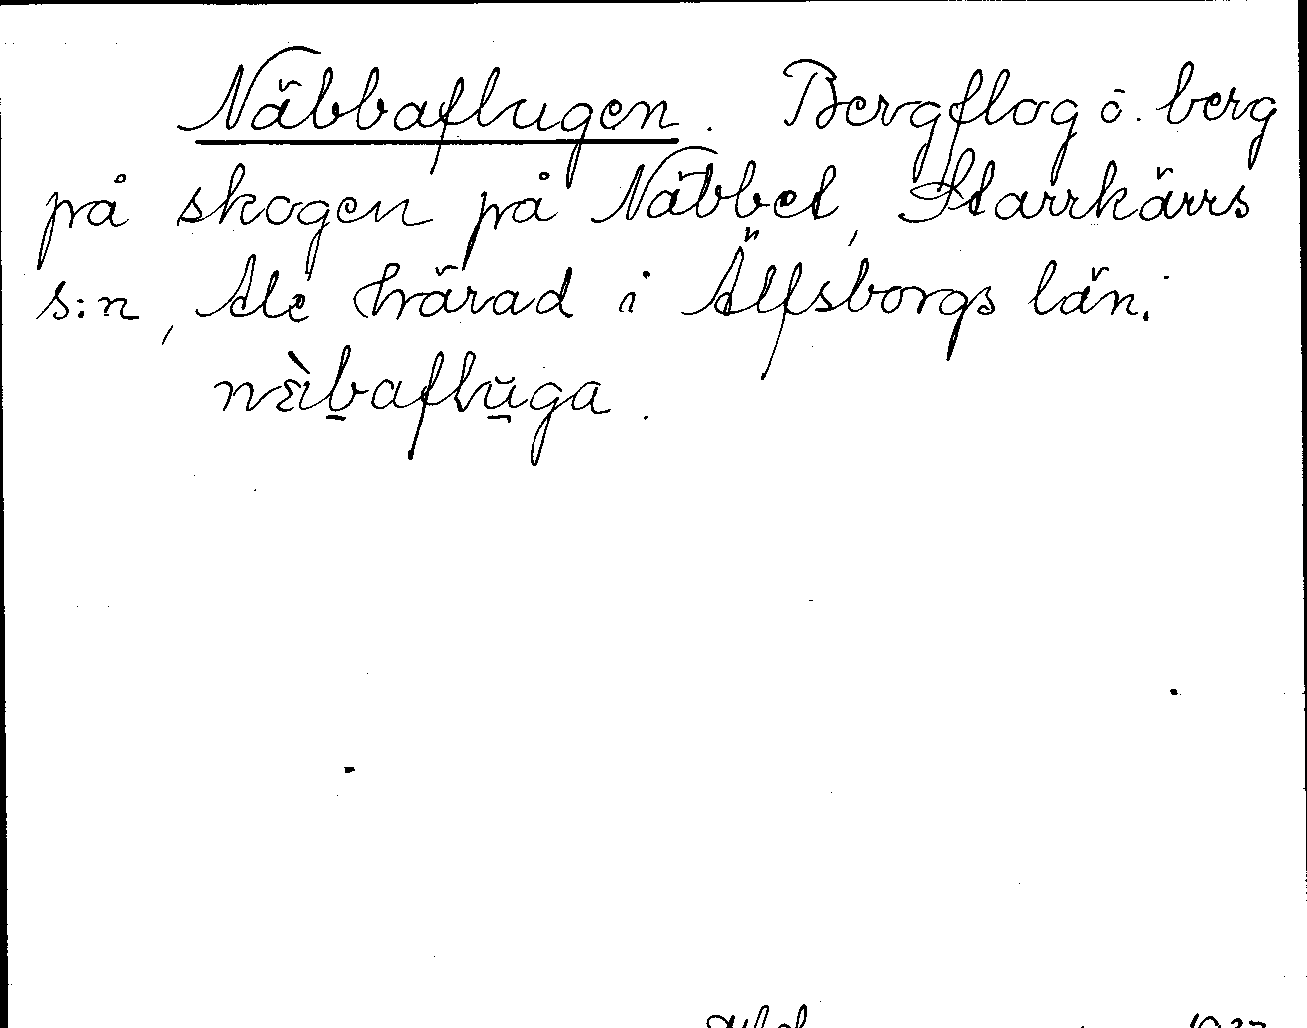 Näbbaflugen. Bergflog ö. berg
på skogen på Näbbet, Starrkärrs
s:n, Ale härad i Älfsborgs län.
nɛ̀b̲aflu̲ga.